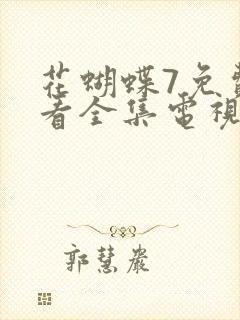 花蝴蝶7免費
看全集電視
郭慧嚴